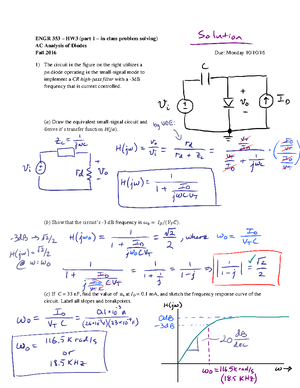 ENGR 353 – HW3 (part 1 – in class problem solving)
AC Analysis of Diodes
Fall 2016
Solution
Due: Monday 10/10/16
1) The circuit in the figure on the right utilizes a
pn diode operating in the small-signal mode to
implement a CR high-pass filter with a -3dB
frequency that is current controlled.
C
Vi
Vo
I_D
(a) Draw the equivalent small-signal circuit and
derive it's transfer function H(jω).
by VDE:
Z_C = 1/jωC
Vi
r_d
Vo
H(jω) = Vo/Vi = r_d/(r_d + Z_C)
H(jω) = 1/(1 + I_D/(jωC V_T))
(b) Show that the circuit's -3 dB frequency is ω₀ = I_D/(V_T C).
-3dB → √2/2
H(jω) = √2/2
@ ω=ω₀
H(jω₀) = 1/(1 + I_D/(jω₀C V_T)) = √2/2, where ω₀ = I_D/(V_T C)
|1/(1-j)| = √2/2
(c) If C = 33 nF, find the value of ω₀ at I_D = 0.1 mA, and sketch the frequency response curve of the
circuit. Label all slopes and breakpoints.
ω₀ = I_D/(V_T C) = 0.1×10⁻³A/((26×10⁻³V)(33×10⁻⁹F))
ω₀ = 116.5 K rad/s
or
18.5 KHz
H(jω)
0dB
-3dB
20 dB/dec
ω
ω₀ = 116.5K rad/s
(18.5 KHz)